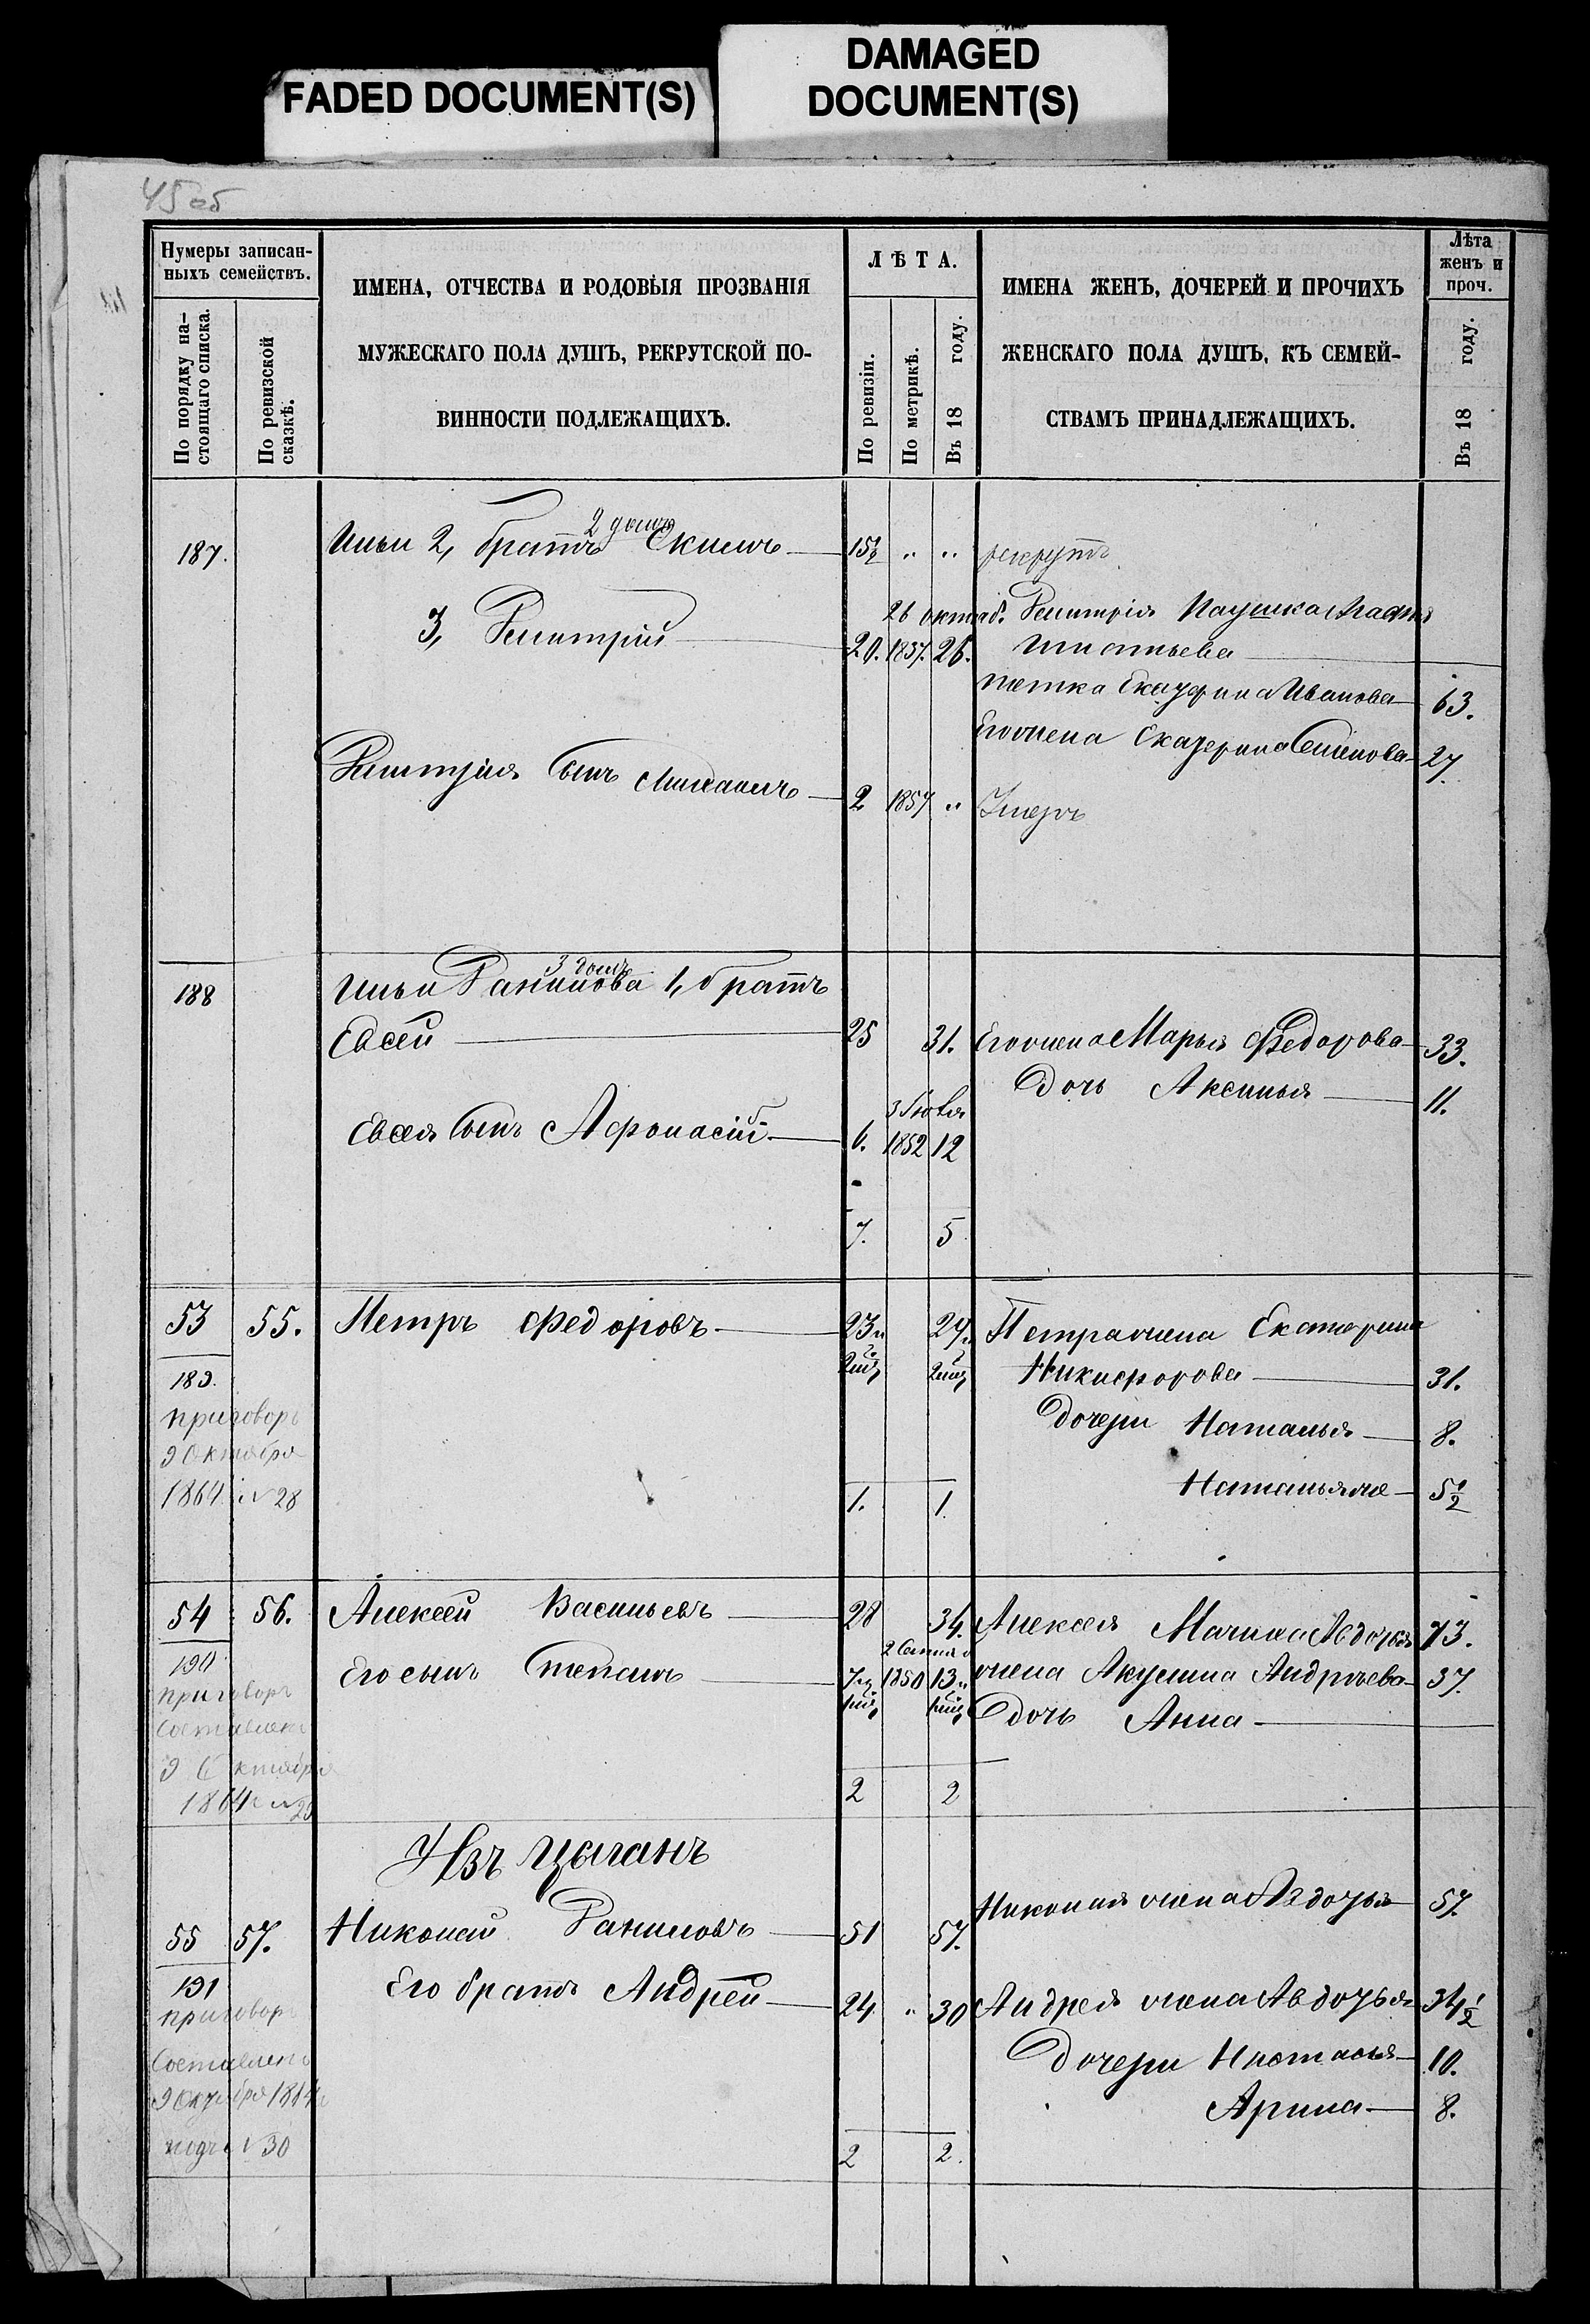 FADED DOCUMENT(S)
DAMAGED
DOCUMENT(S)
45 об
Нумеры записан-
ныхъ семействъ.
По порядку на-
стоящаго списка.
По ревизской
сказкѣ.
ИМЕНА, ОТЧЕСТВА И РОДОВЫЯ ПРОЗВАНІЯ
МУЖЕСКАГО ПОЛА ДУШЪ, РЕКРУТСКОЙ ПО-
ВИННОСТИ ПОДЛЕЖАЩИХЪ.
ЛѢТА.
По ревизіи.
По метрикѣ.
Въ 18 году.
ИМЕНА ЖЕНЪ, ДОЧЕРЕЙ И ПРОЧИХЪ
ЖЕНСКАГО ПОЛА ДУШЪ, КЪ СЕМЕЙ-
СТВАМЪ ПРИНАДЛЕЖАЩИХЪ.
Лѣта
женъ и
проч.
Въ 18 году.
2 домъ
187. Ильи 2, братъ Екимъ 15½ " " рекрутъ
26 октяб. Дмитрія
3, Дмитрій 20. 1837. 26.
тетка Екатерина Иванова 63.
Его жена Екатерина Семенова 27.
Дмитрія сынъ Михаилъ 2 1857 " Умеръ
3 домъ
188 Ильи Данилова 1, братъ
Евсей 25 31. Его жена Марья Федорова 33.
Дочь Аксинья 11.
3 Іюля
Евсея сынъ Афонасій 6. 1852 12
7. 5
53 55. Петръ Федоровъ 23 29 Петра жена Екатерина
Никифорова 31.
189.
приговоръ
9 Октября
1864 № 28
Дочери Наталья 8.
Наталья же 5½
1. 1
54 56. Алексей Васильевъ 28 34. Алексея Мачиха Авдотья 73.
190 Его сынъ Степанъ 7 1850 13 жена Акулина Андреева 37.
приговоръ
составленъ
9 Октября
1864 № 29
дочь Анна
2 2
Изъ цыганъ
Николая жена Авдотья 57.
55 57. Николай Даниловъ 51 57.
191 Его братъ Андрей 24. " 30 Андрея жена Авдотья 34½
приговоръ
составленъ
9 Октября 1864
№ 30
Дочери Настасья 10.
Арина 8.
2 2.